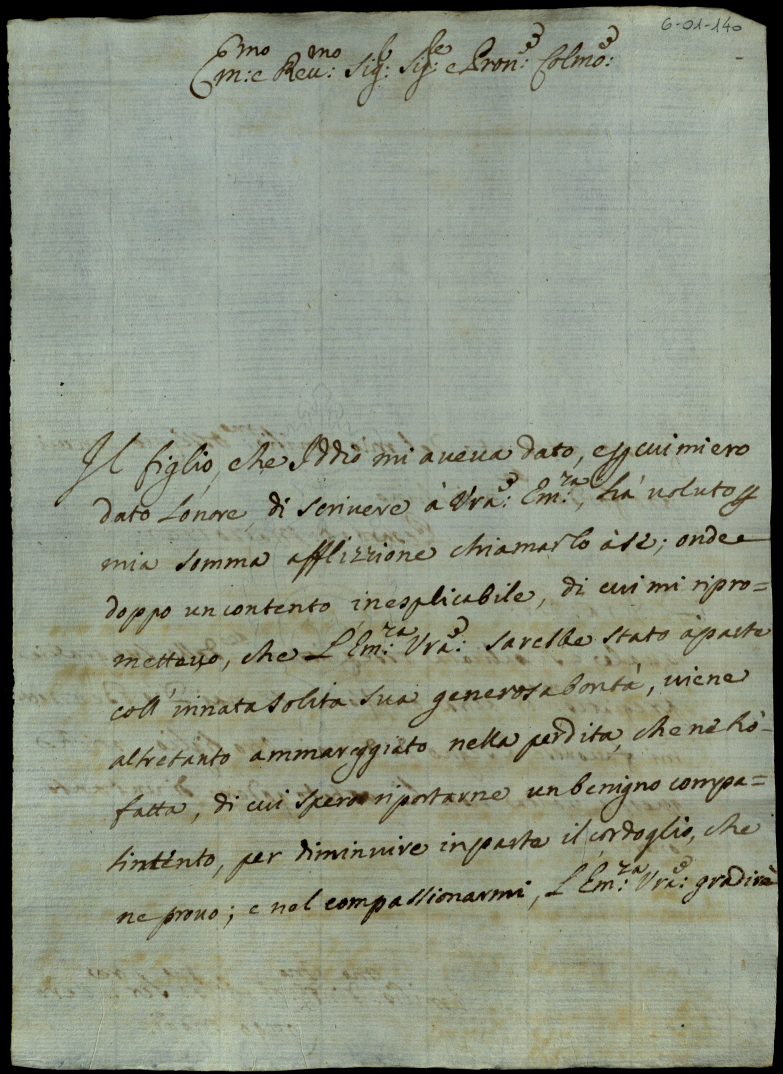 6-01-140
Em:mo e Reu:mo Sig:r Sig:re e Pron:e Colmo:e
Il figlio, che Iddio mi aueua dato, e per cui mi ero
dato l'onore di scriuere à Vra:e Em:za, há uoluto per
mia somma afflizzione chiamarlo à sè; onde
doppo un contento inesplicabile, di cui mi ripro=
metteuo, che l'Em:za Vra:e sarebbe stato à parte
coll' innata solita sua generosa bontá, uiene
altretanto ammareggiato nella perdita, che nè hò
fatta, di cui spero riportarne un benigno compa=
timento, per diminuire in parte il cordoglio, che
ne prouo; e nel compassionarmi, l'Em:za Vra:e gradirà